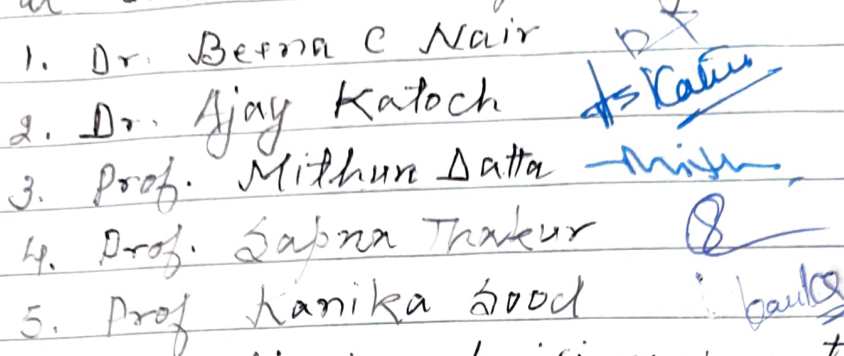 1. Dr. Beena C Nair
2. Dr. Ajay Katoch
3. Prof. Mithun Datta
4. Prof. Sapna Thakur
5. Prof Kanika Sood